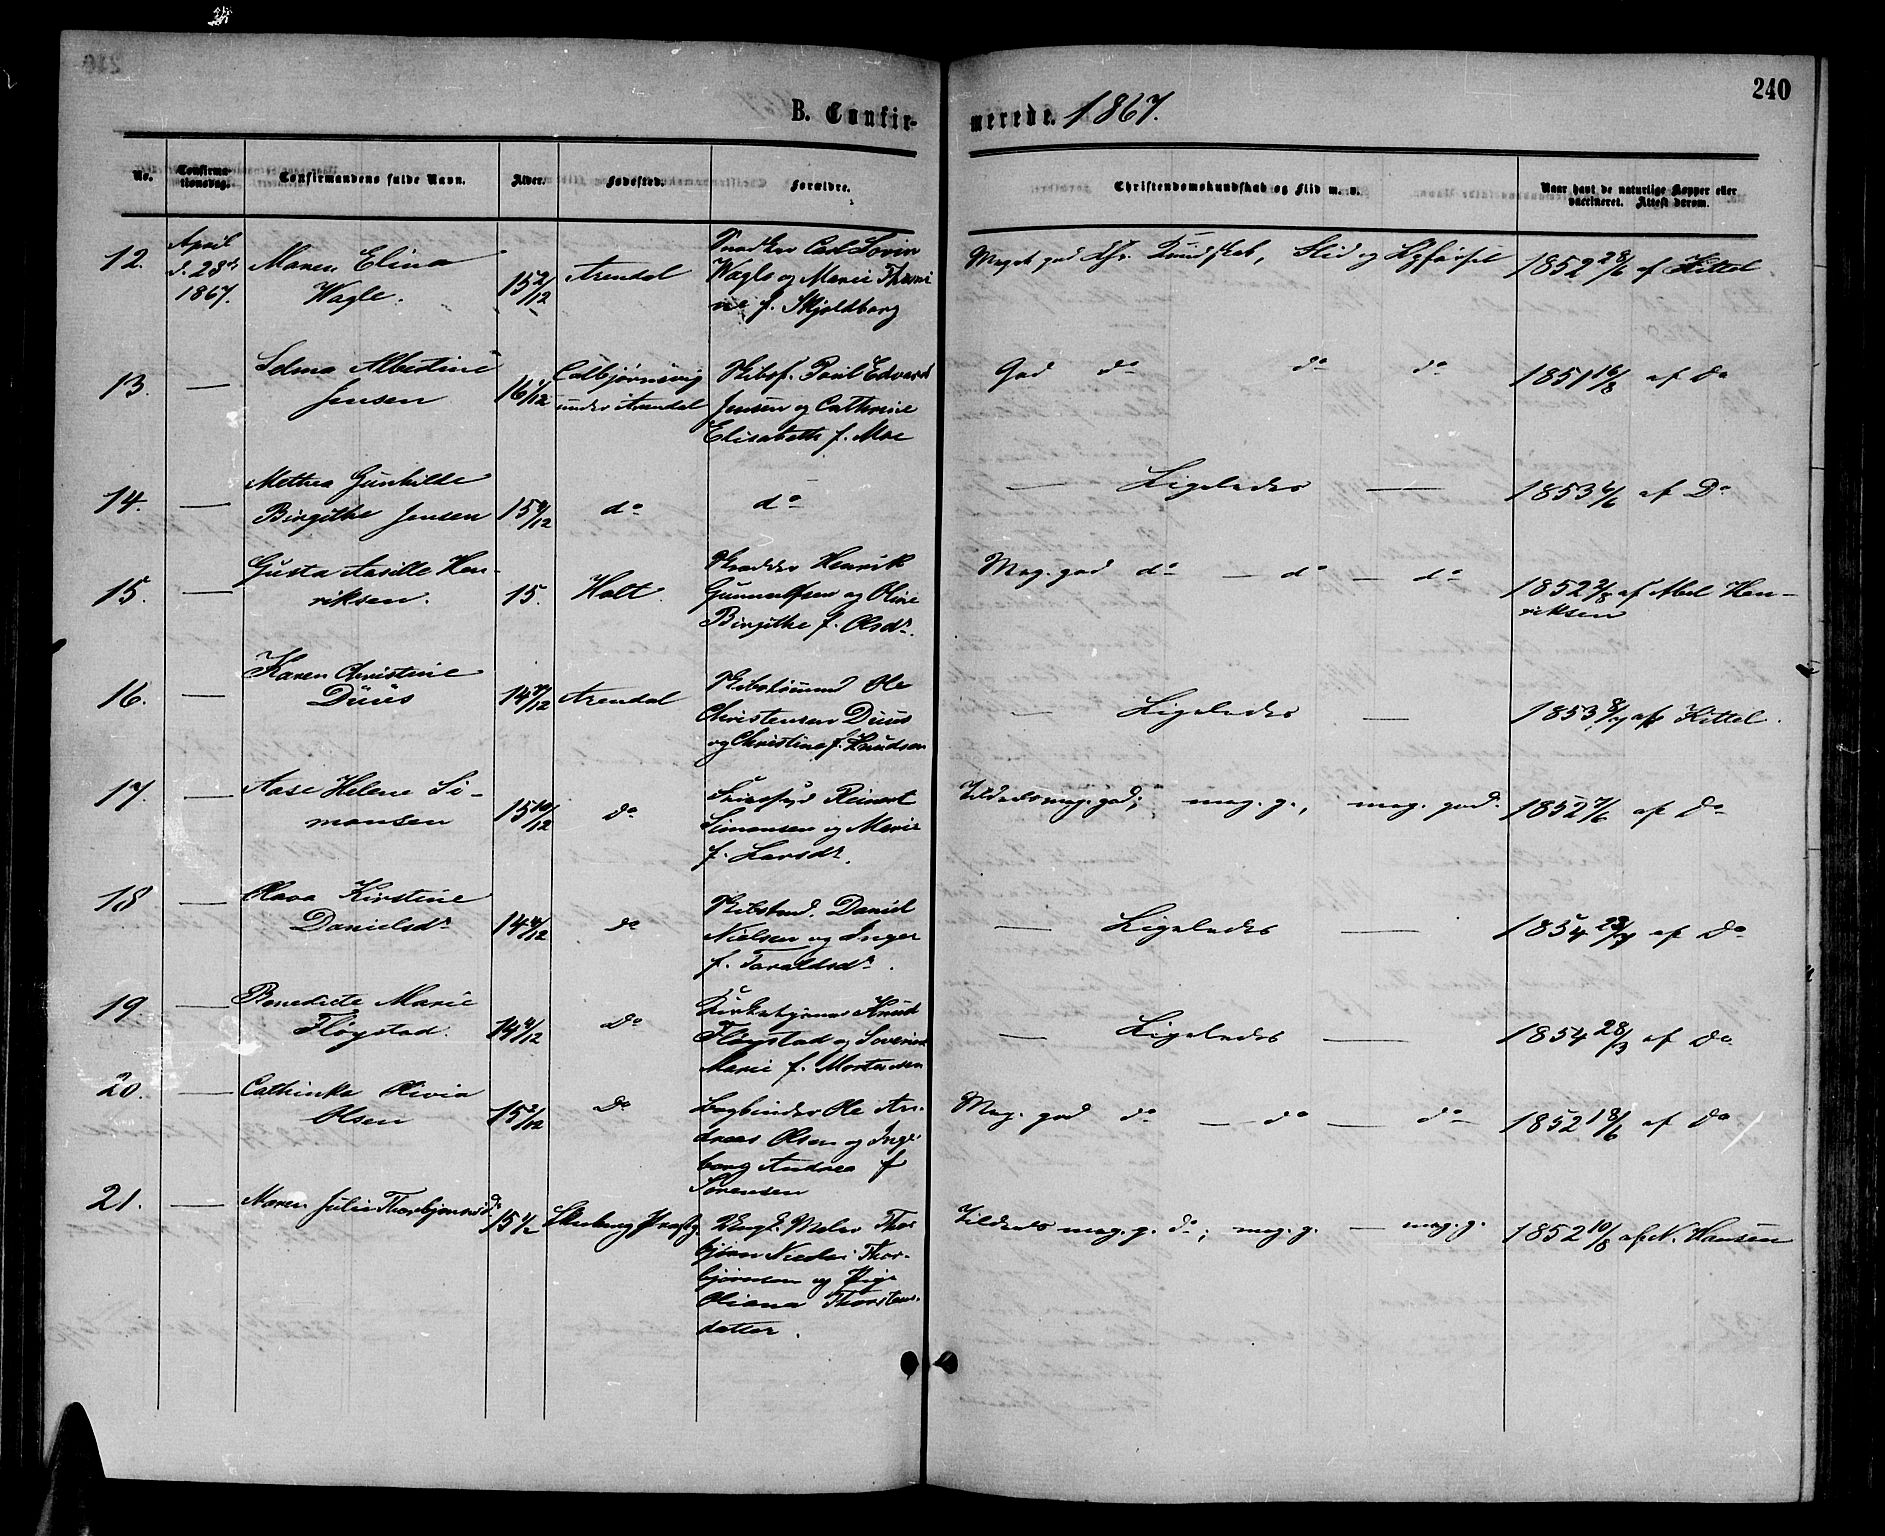 240
B. Confirmerede. 1867.
No. Confirmationsdag. Confirmandens fulde Navn. Alder. Fødested. Forældre. Christendomskundskab og Flid m. v. Naar havt de naturlige Kopper eller vaccineret. Attest derom.
12. April d. 28de 1867. Maren Elina Wagle. 15 2/12 Arendal Carl Sorin Wagle og Marie f. Skjoldborg Meget god Chr. Kundskab, Flid og Opførsel 1852 28/6 af Kittel.
13. — Selma Albertine Jensen 16 1/12 Colbjørnsvig under Arendal Skibsf. Poul Edvard Jensen og Cathrine Elisabeth f. Moe God do do do 1851 16/8 af do
14. — Methea Gunhilde Birgithe Jensen do do — Ligeledes — 1853 6/6 af Do
15. — Gusta Aasille Henriksen. 15. Holt. Henrik Gunnulfsen og Oline Birgithe f. Olsdr. Meg. god do — do — do 1852 af Abel Henriksen
16. — Karen Christine Duus Arendal Ole Christensen Duus og Christine f. Knudsen — Ligeledes — 1853 af Kittel.
17. — Aase Helene Simonsen 15 10/12 do Reinert Simonsen og Marie f. Larsdr. Tildeels meg. god; meg. g., meg. god. 1852 7/6 af do
18. — Olava Kirstine Danielsdr do Daniel Nielsen og Inger f. Taraldsdr. — Ligeledes — 1854 af do
19. — Benedicte Marie Fløystad. do Knud Fløystad og Severine Marie f. Mortensen — Ligeledes — 1854 28/3 af do
20. — Cathinka Olivia Olsen 15 2/12 do Bogbinder Ole Andreas Olsen og Ingeborg Andrea f Sørensen Meg. god do — do — do 1852 18/6 af do
21. — Maren Julie Thorbjørnsd. 15 1/2 Ungk. Maler Thorbjørn Thorbjørnsen og Pige Oliana Thorstensdatter. Tildeels meg. g. do; meg. g. — meg. g. 1852 10/8 af N. Hansen